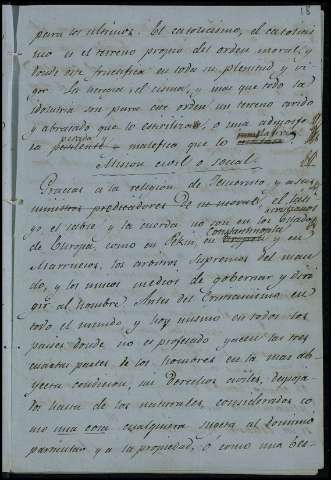 18
para los últimos. El catolicismo, el catolicis
mo es el terreno propio del orden moral, y
donde este fructifica en toda su plenitud y vi
gor. La heregia el cisma, y mas que todo la
idolatria son para este orden un terreno arido
y abrasado que lo esteriliza, o una admosfera
malefica que lo
Mision civil o social
Gracias a la religion de Jesucristo, y a sus
ministros predicadores de su moral, el lati
go, el sable y la cuerda no son en los Estados
cristianos
de Europa, como en Pekin, en Constantinopla y en
Marruecos, los arbitros supremos del man
do, y los unicos medios de gobernar y diri
gir al hombre. Antes del Cristianismo en
todo el mundo, y hoy mismo en todos los
paises donde no es profesado yacen las tres
cuartas partes de los hombres en la mas ab
yecta condicion, sin Derechos civiles, despoja
dos hasta de los naturales, considerados co
mo una cosa cualquiera sujeta al dominio
particular y a la propiedad, ó como una bes